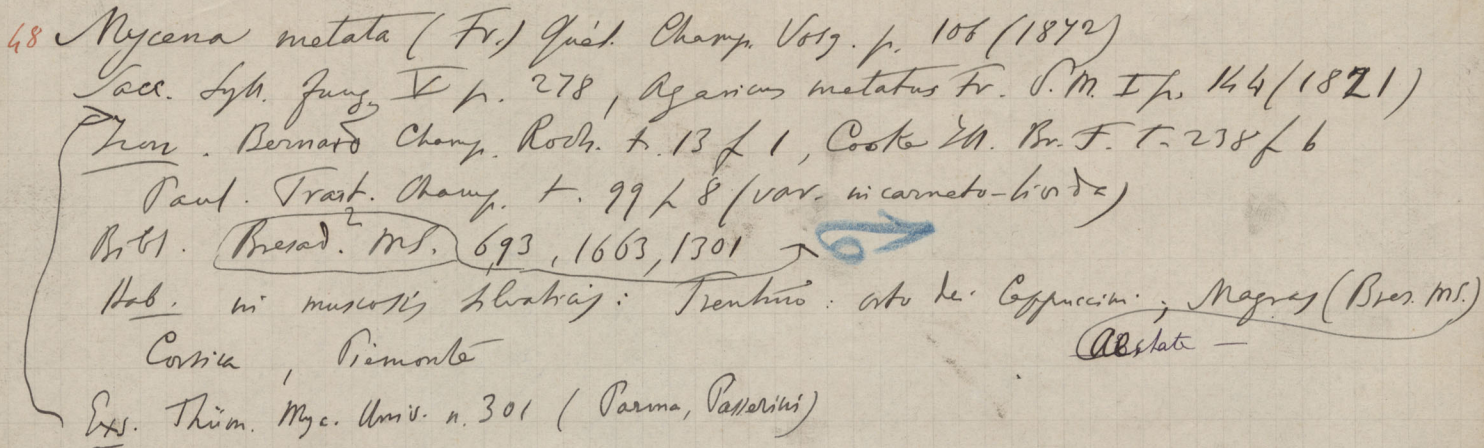 48 Mycena metata (Fr.) Quél. Champ. Vosg. p. 106 (1872)
Sacc. Syll. Fung. V p. 278, Agaricus metatus Fr. S. M. I p. 144 (1821)
Icon. Bernard Champ. Roch. t. 13 f 1, Cooke Ill. Br. F. T. 238 f 6
Paul. Trait. Champ. t. 99 f 8 (var. incarneto-livida)
Bibl. Bresad.² MS. 693, 1663, 1301
Hab. in muscosis silvaticis: Trentino: orto dei Cappuccini; Magras (Bres. MS.)
Aestate —
Corsica, Piemonte
Exs. Thüm. Myc. Univ. n. 301 (Parma, Passerini)